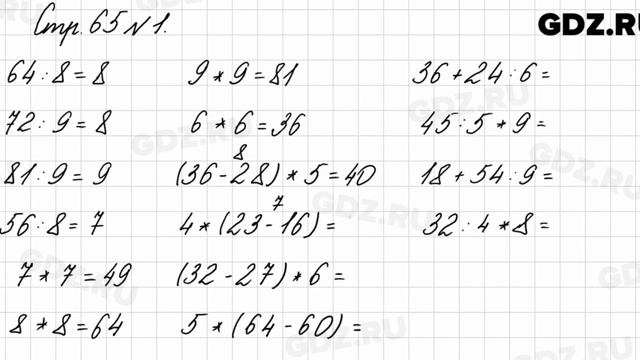 Стр. 65 №1.
GDZ.RU
64:8=8
72:9=8
81:9=9
56:8=7
7*7=49
8*8=64
9*9=81
6*6=36
8
(36-28)*5=40
7
4*(23-16)=
(32-27)*6=
5*(64-60)=
36+24:6=
45:5*9=
18+54:9=
32:4*8=
GDZ.RU
GDZ.RU
GDZ.RU
GDZ.RU
GDZ.RU
GDZ.RU